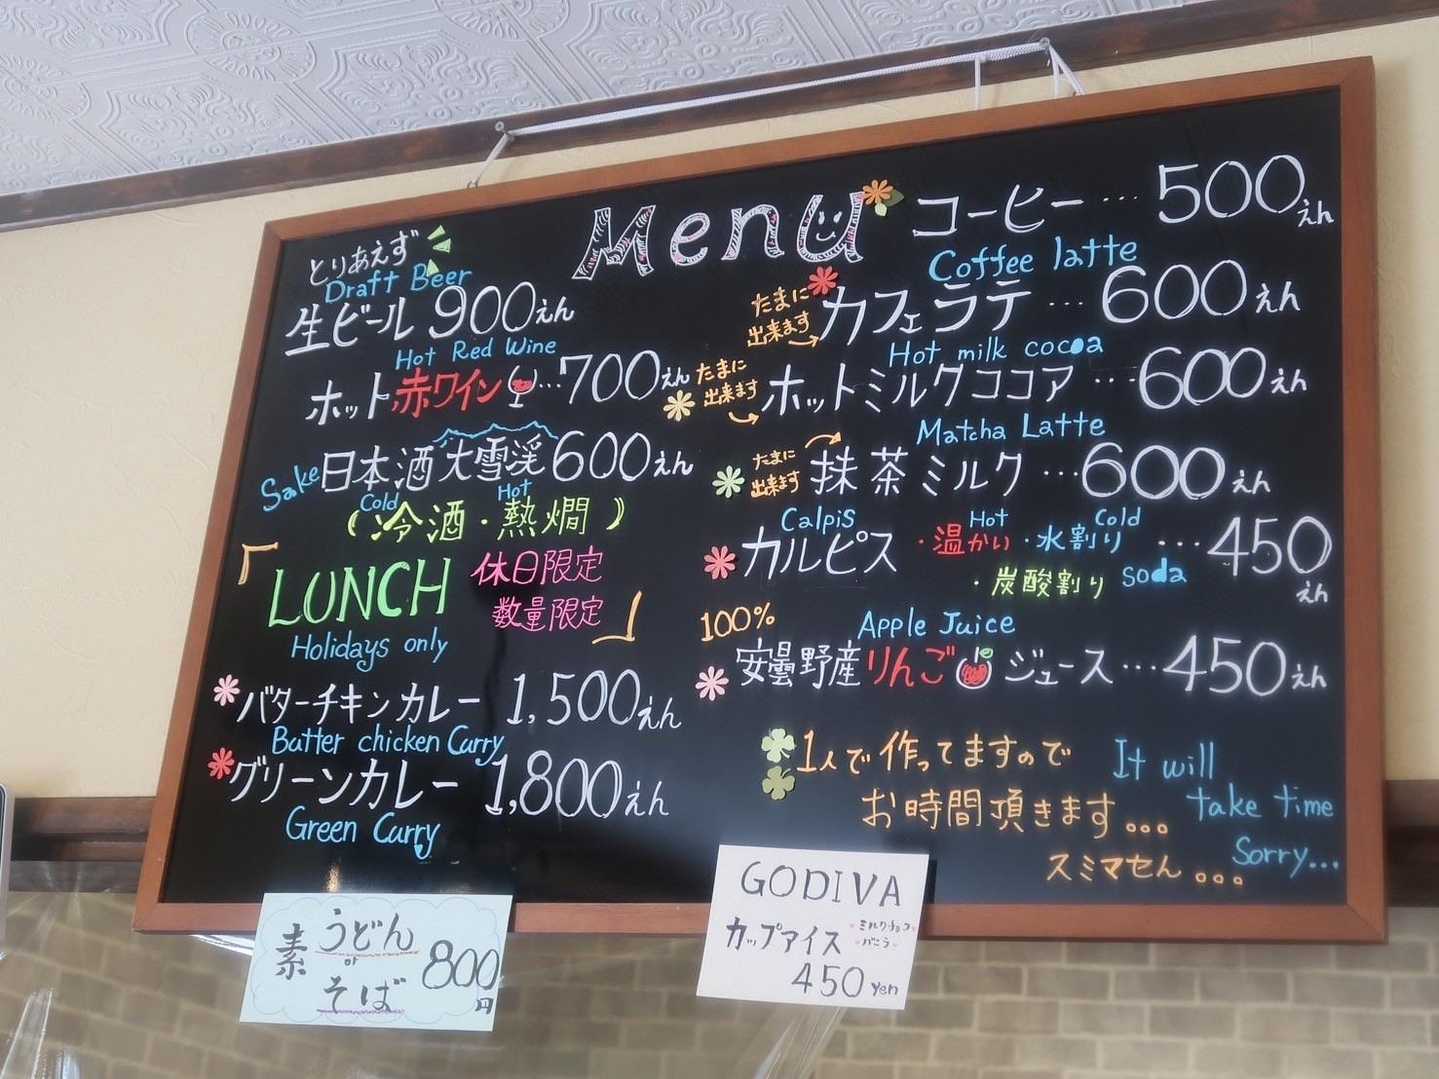 Menu
とりあえず
Draft Beer
生ビール 900えん
Hot Red Wine
ホット赤ワイン…700えん
Sake 日本酒 大雪渓 600えん
Cold Hot
(冷酒・熱燗)
「LUNCH 休日限定
数量限定」
Holidays only
バターチキンカレー 1,500えん
Butter chicken Curry
グリーンカレー 1,800えん
Green Curry
コーヒー…500えん
Coffee latte
たまに
出来ます
カフェラテ…600えん
Hot milk cocoa
たまに
出来ます
ホットミルクココア…600えん
Matcha Latte
たまに
出来ます
抹茶ミルク…600えん
Calpis Hot Cold
カルピス ・温かい・水割り…450えん
・炭酸割り soda
100% Apple Juice
安曇野産りんごジュース…450えん
1人で作ってますので
お時間頂きます...
スミマせん...
It will
take time
Sorry...
素 うどん or そば 800円
GODIVA
カップアイス ミルクチョコ
バニラ
450 yen